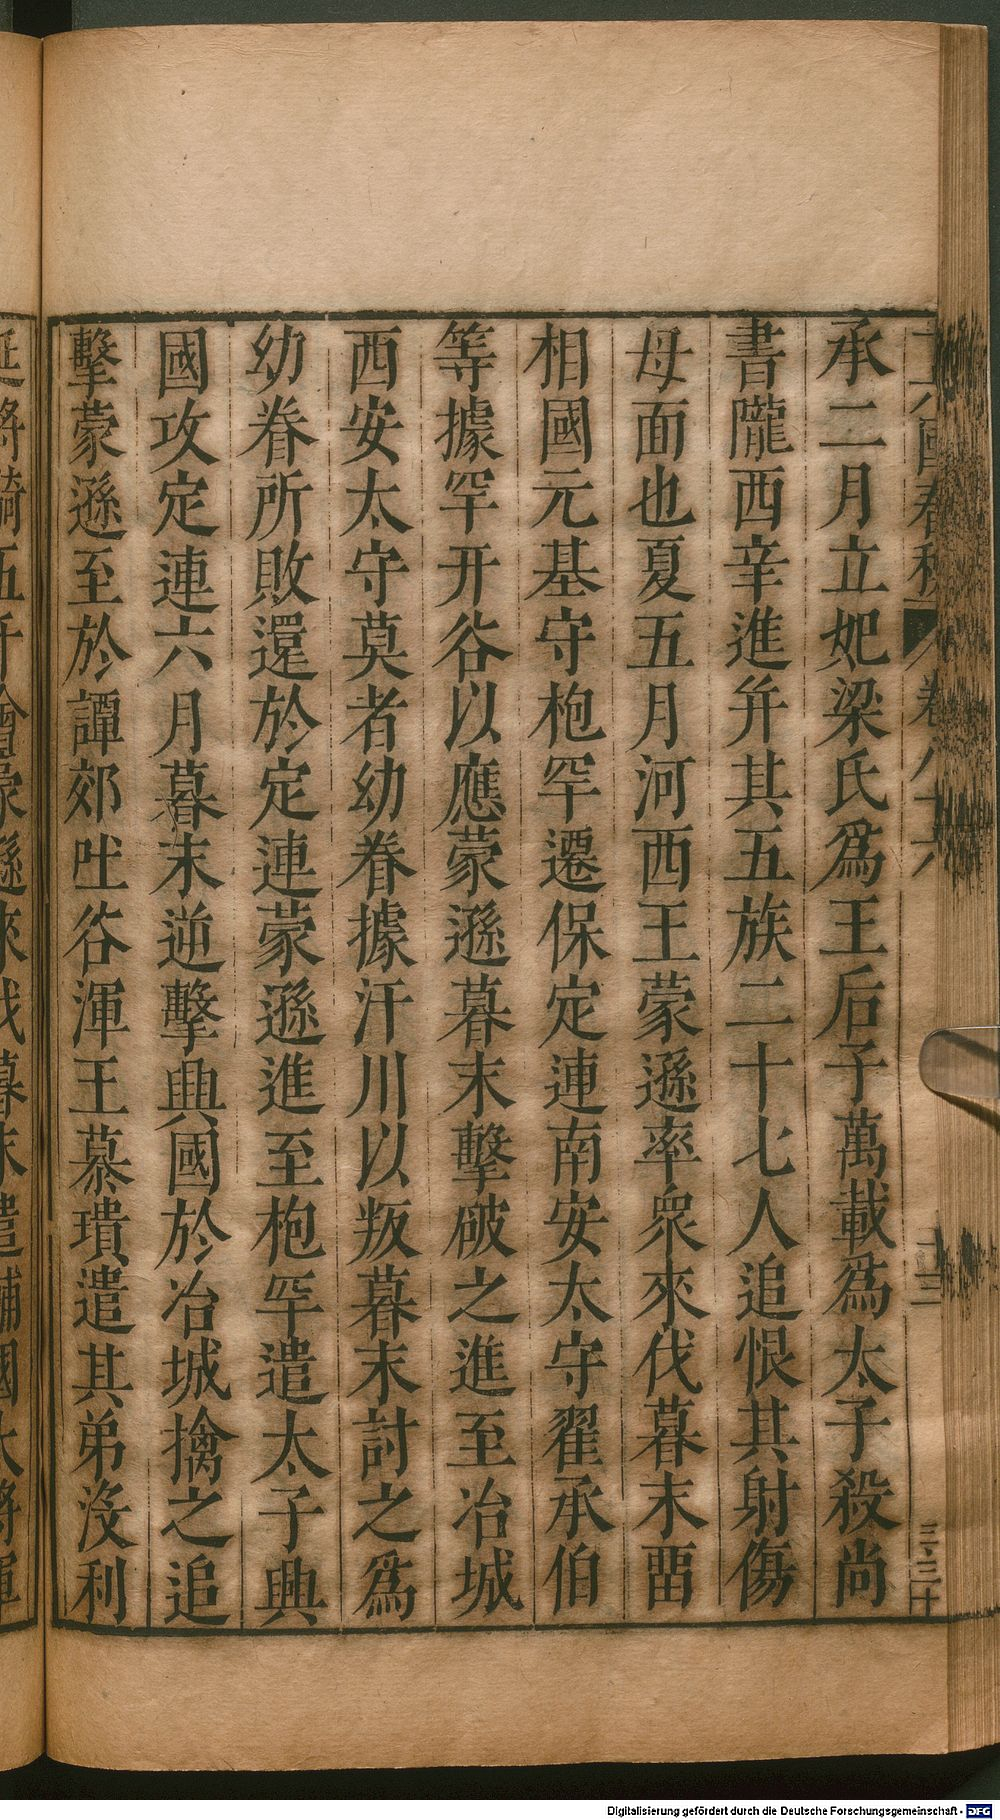 十六國春秋 卷八十六 十二
承二月立妃梁氏爲王后子萬載爲太子殺尚
書隴西辛進幷其五族二十七人追恨其射傷
母面也夏五月河西王蒙遜率衆來伐暮末畱
相國元基守枹罕遷保定連南安太守翟承伯
等據罕幵谷以應蒙遜暮末擊破之進至冶城
西安太守莫者幼眷據汧川以叛暮末討之爲
幼眷所敗還於定連蒙遜進至枹罕遣太子興
國攻定連六月暮末逆擊興國於冶城擒之追
擊蒙遜至於譚郊吐谷渾王慕璝遣其弟沒利
Digitalisierung gefördert durch die Deutsche Forschungsgemeinschaft - DFG